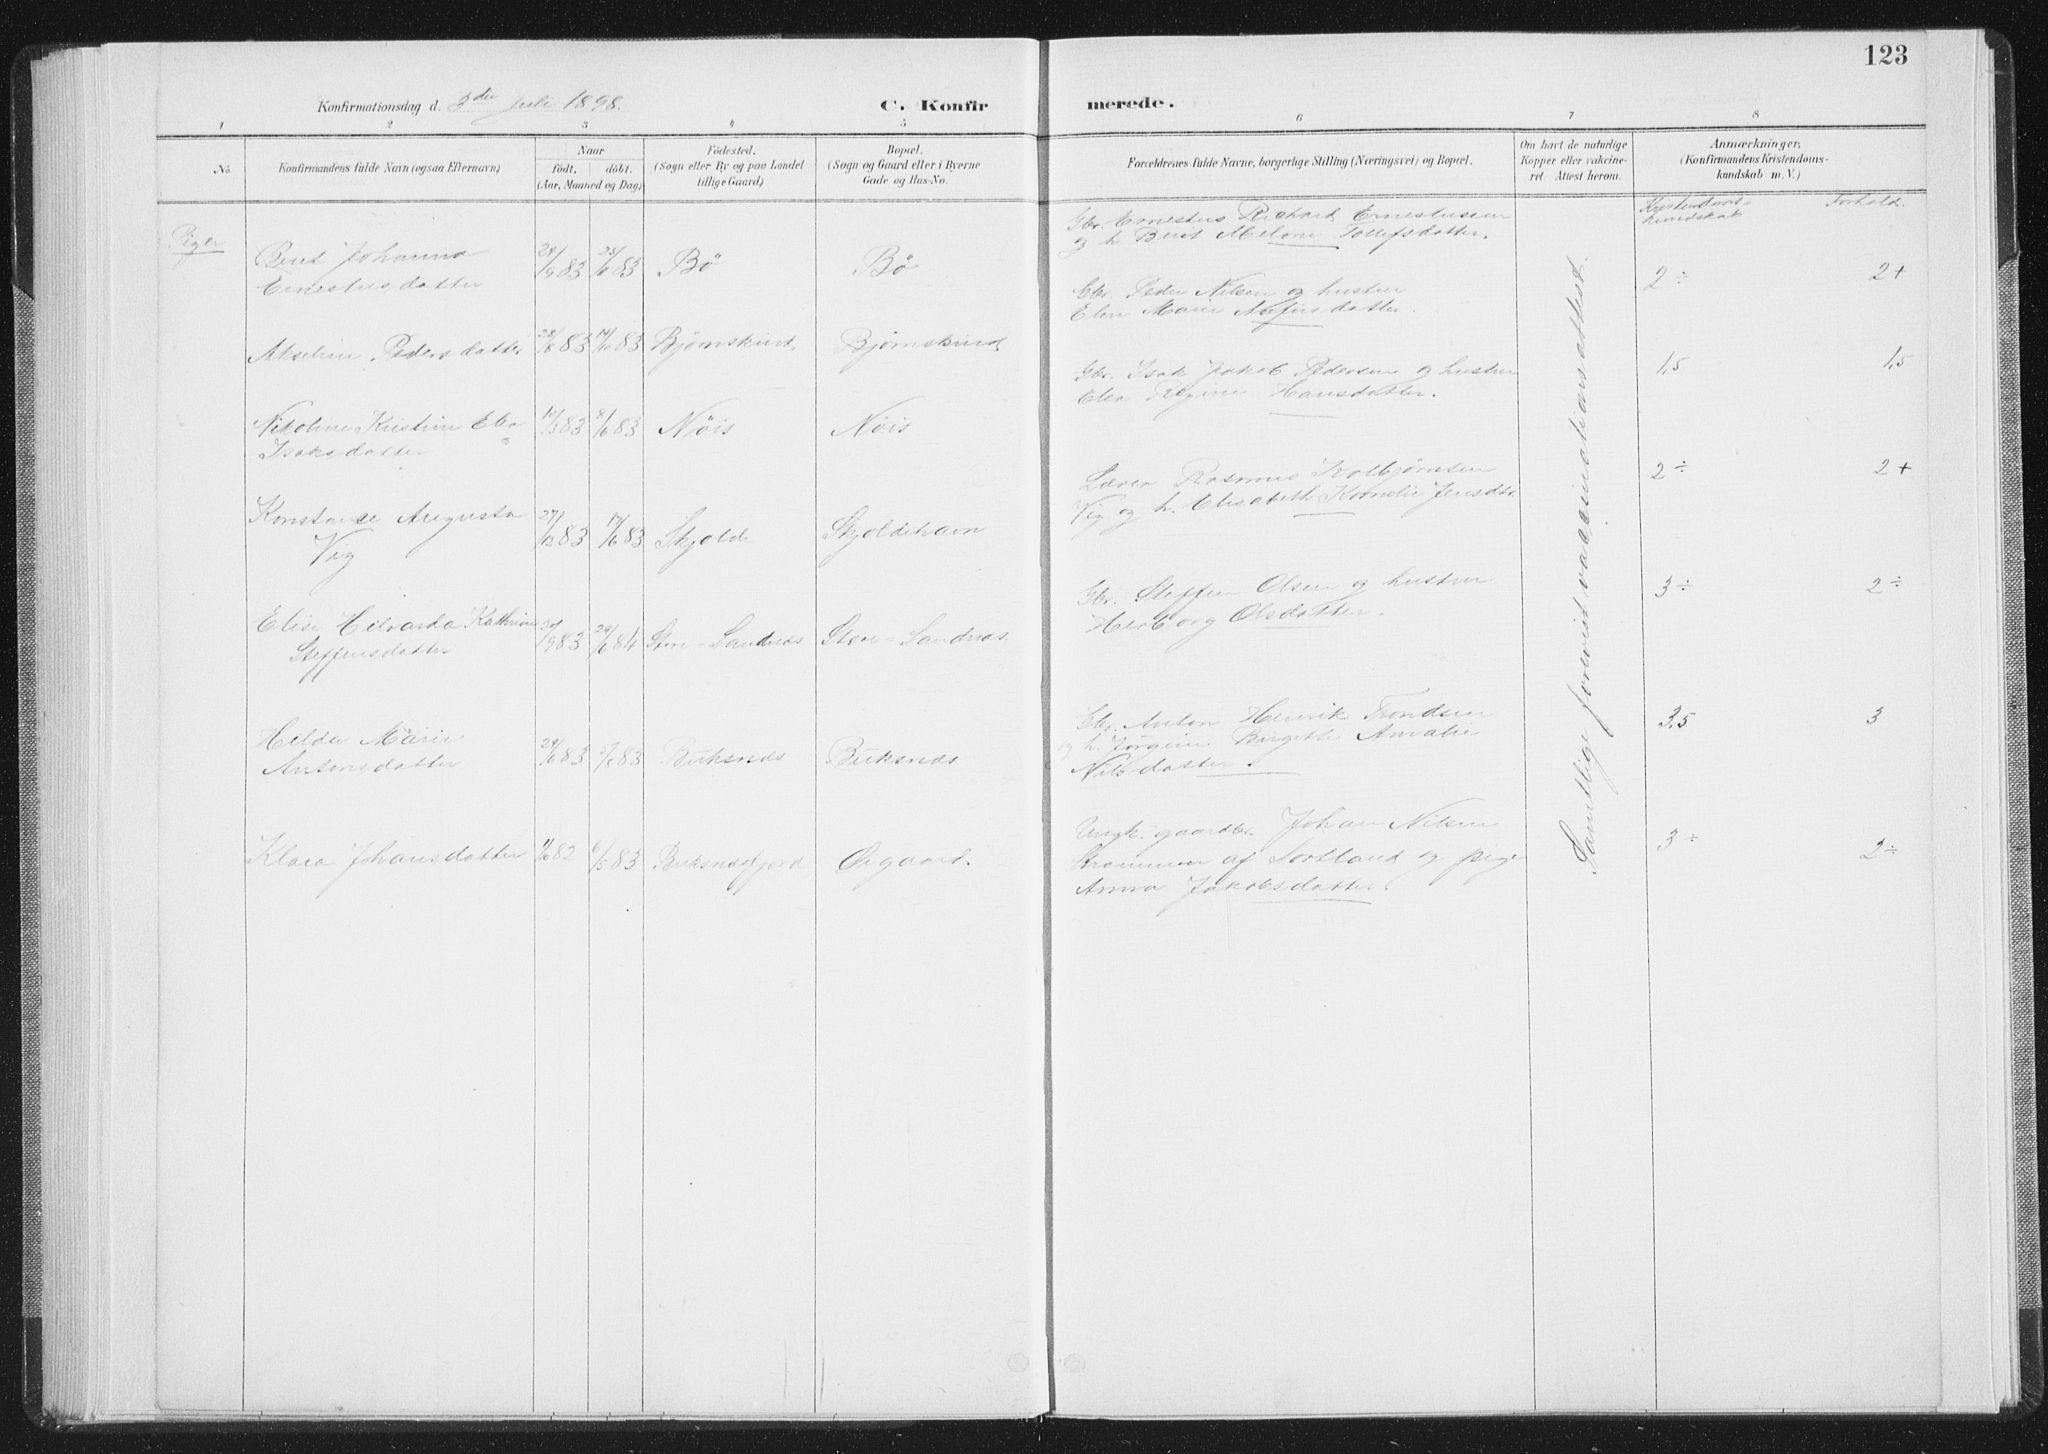 123
Konfirmationsdag d. 3die Juli 1898.
C. Konfir
merede.
1 2 3 4 5 6 7 8
No.
Konfirmandens fulde Navn (ogsaa Efternavn)
Naar
födt. döbt.
(Aar, Maaned og Dag)
Födested.
(Sogn eller By og paa Landet
tillige Gaard)
Bopæl.
(Sogn og Gaard eller i Byerne
Gade og Hus-No.
Forældrenes fulde Navne, borgerlige Stilling (Næringsvei) og Bopæl.
Om havt de naturlige
Kopper eller vakcine-
ret. Attest herom.
Anmærkninger.
(Konfirmandens Kristendoms-
kundskab m. V.)
Kristendoms-
kundskab
Forhold.
Piger
Berit Johanna
Ernestusdatter
83 83 Bø Bø
Gbr. Ernestus Richard Ernestussen
og h. Berit Melone Tollefsdatter.
2÷ 2+
Akseline Pedersdatter
28/8 83 14/10 83 Bjørnskind. Bjørnskind
Gbr. Peder Nilsen og hustru
Elen Marie datter.
1,5 1,5
Nikoline Kristine Elea
Isaksdatter
10/3 83 8/6 83 Nöis Nöis
Gbr. Isak Jakob Pedersen og hustru
Elea Regine Hansdatter.
2÷ 2+
Konstanse Augusta
Vig
83 17/6 83 Skjolde Skjoldehavn
Lærer Rasmus Kolbjørnsen
Vig og h. Elisabeth Kornelie Jensdtr.
3÷ 2÷
Elise Hilvarda Kathrine
Steffensdatter
83 84 Store-Sandnæs Store-Sandnæs
Gbr. Steffen Olsen og hustru
Herborg Olsdatter.
3,5 3
Helda Marie
Antonsdatter
83 83 Buksnæs Buksnæs
Gbr. Anton Henrik Trondsen
og h. Jørgine Birgitte Amalie
Nilsdatter.
3÷ 2÷
Klara Johansdatter
82 6/5 83 Buksnæsfjord Øigaard.
Ungk. gaardbr. Johan Nilsen
Strømmen af Sortland og pige
Anna Jakobsdatter.
Samtlige forevist vaccinationsattest.